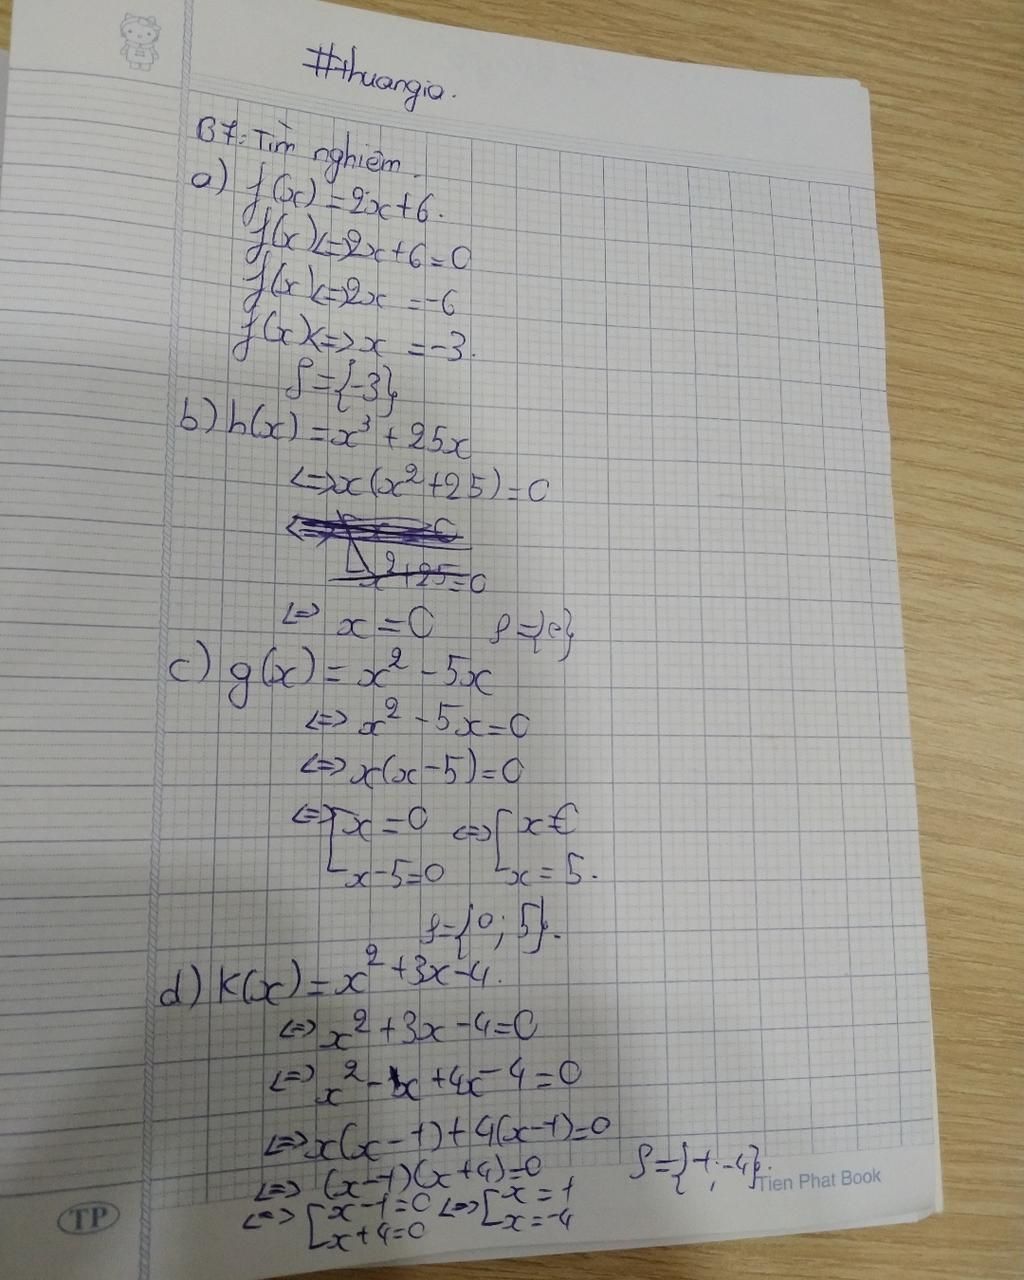 #thuangia.
B7: Tìm nghiệm.
a) f(x) = 2x+6.
f(x) <=> 2x+6 = 0
f(x) <=> 2x = -6
f(x) <=> x = -3.
S = {-3}
b) h(x) = x³ + 25x
<=> x(x² + 25) = 0
x²+25=0
<=> x = 0 S = {0}
c) g(x) = x² - 5x
<=> x² - 5x = 0
<=> x(x-5) = 0
<=> [x = 0 <=> [x €
x-5=0 x = 5.
S = {0; 5}.
d) K(x) = x² + 3x - 4.
<=> x² + 3x - 4 = 0
<=> x² - 1x + 4x - 4 = 0
<=> x(x-1) + 4(x-1) = 0
<=> (x-1)(x+4) = 0 S = {1; -4}.
<=> [x-1=0 <=> [x = 1
x+4=0 x = -4
Tien Phat Book
TP